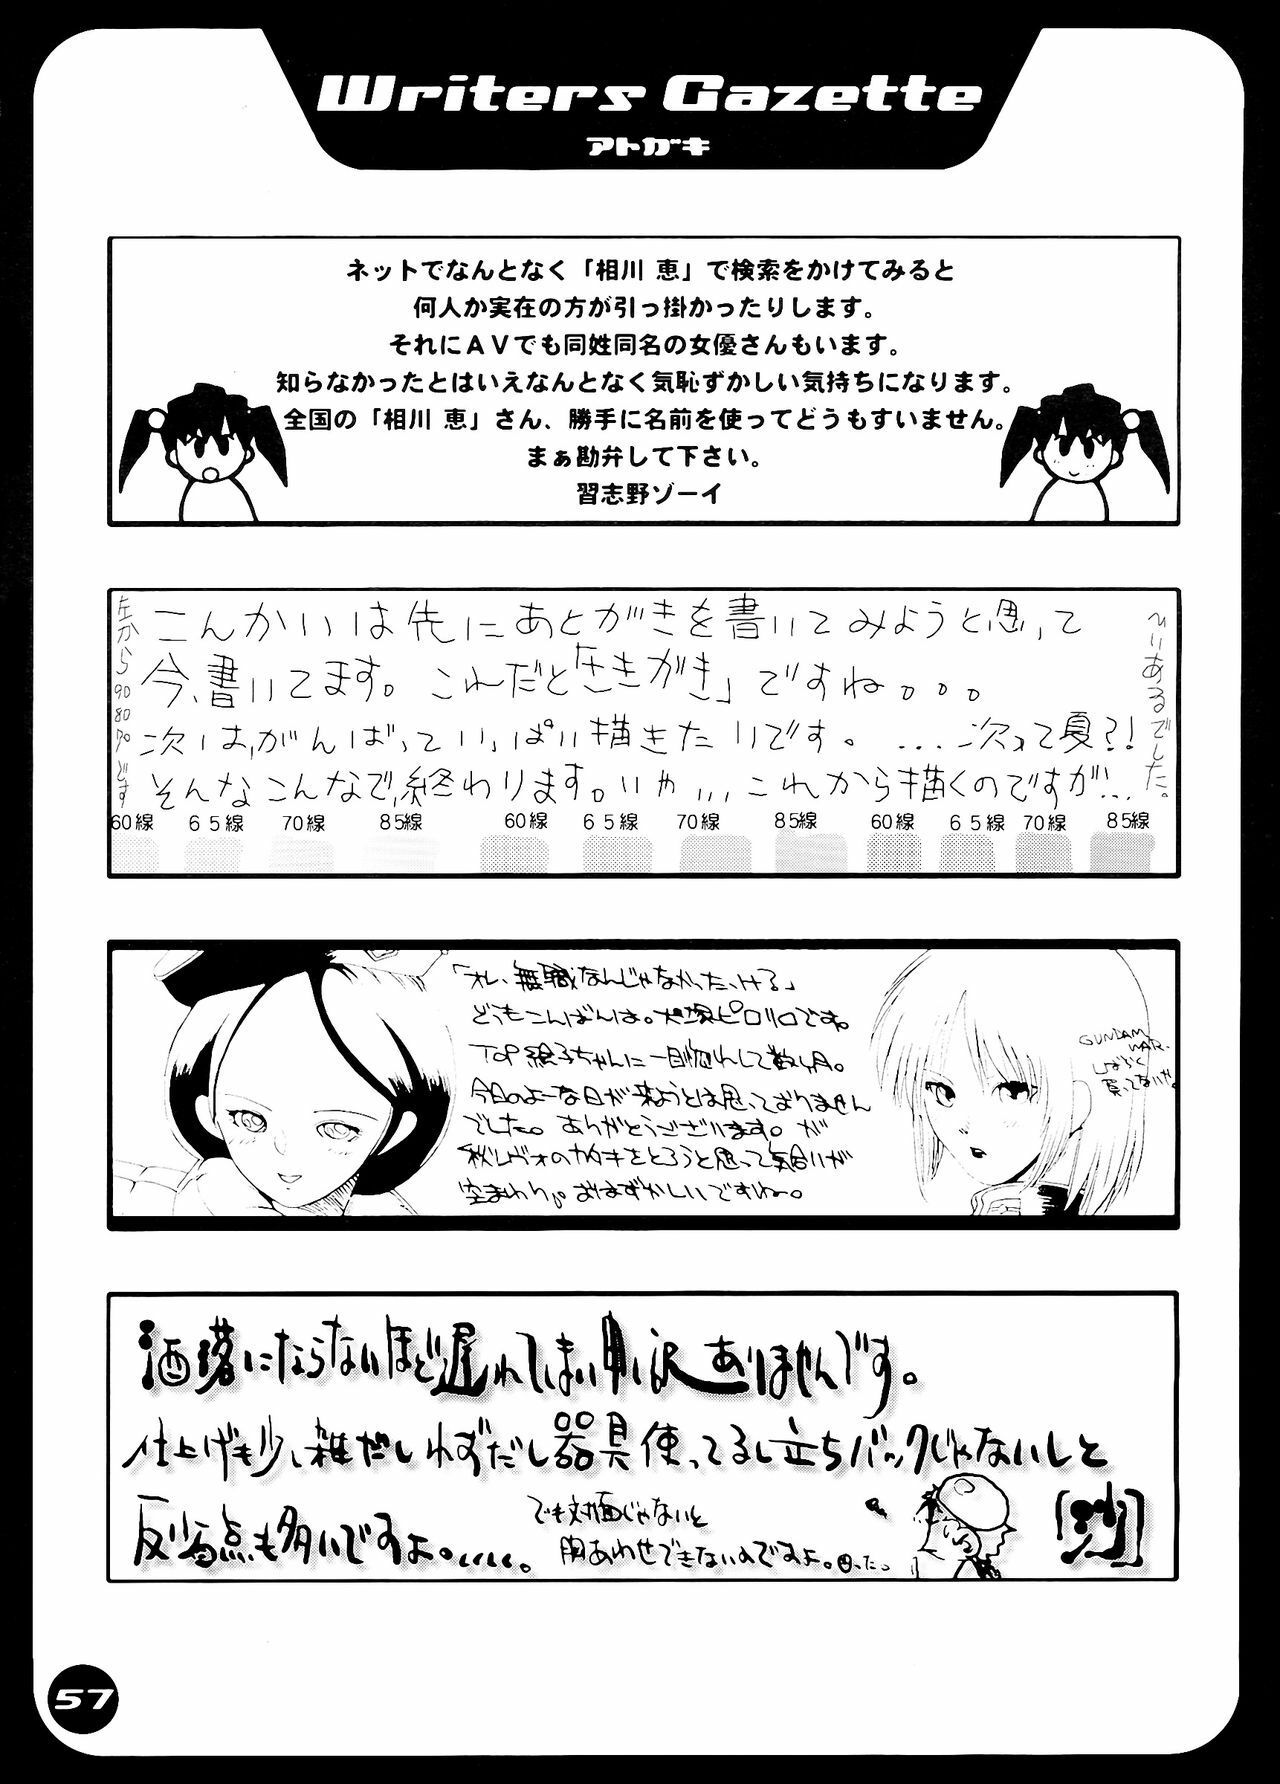 Writers Gazette
アトガキ
ネットでなんとなく「相川 恵」で検索をかけてみると
何人か実在の方が引っ掛かったりします。
それにAVでも同姓同名の女優さんもいます。
知らなかったとはいえなんとなく気恥ずかしい気持ちになります。
全国の「相川 恵」さん、勝手に名前を使ってどうもすいません。
まぁ勘弁して下さい。
習志野ゾーイ
左から908070です
こんかいは先にあとがきを書いてみようと思って
今、書いてます。これだと「さきがき」ですね。。。
次は、がんばっていっぱい描きたいです。...次って夏?!
そんなこんなで、終わります。いや,,,これから描くのですが...
ひいあるでした。
60線 65線 70線 85線 60線 65線 70線 85線 60線 65線 70線 85線
「オレ、無職なんじゃなかったっけ?」
どうもこんばんは。犬塚ピロリロです。
TOP絵子ちゃんに一目惚れして数ヶ月。
今日のよーな日が来ようとは思っておりません
でした。ありがとうございます。が
秋レヴォのカタキをとろうと思って気合いが
空まわり。おはずかしいですねー。
GUNDAM
WAR.
しばらく
買ってないや。
洒落にならないほど遅れてしまい申し訳ありませんです。
仕上げも少し雑だしわずだし器具使ってるし立ちバックじゃないしと
反省点も多いですよ。、、、、。
でも対面じゃないと
胸あわせできないのですよ。
57